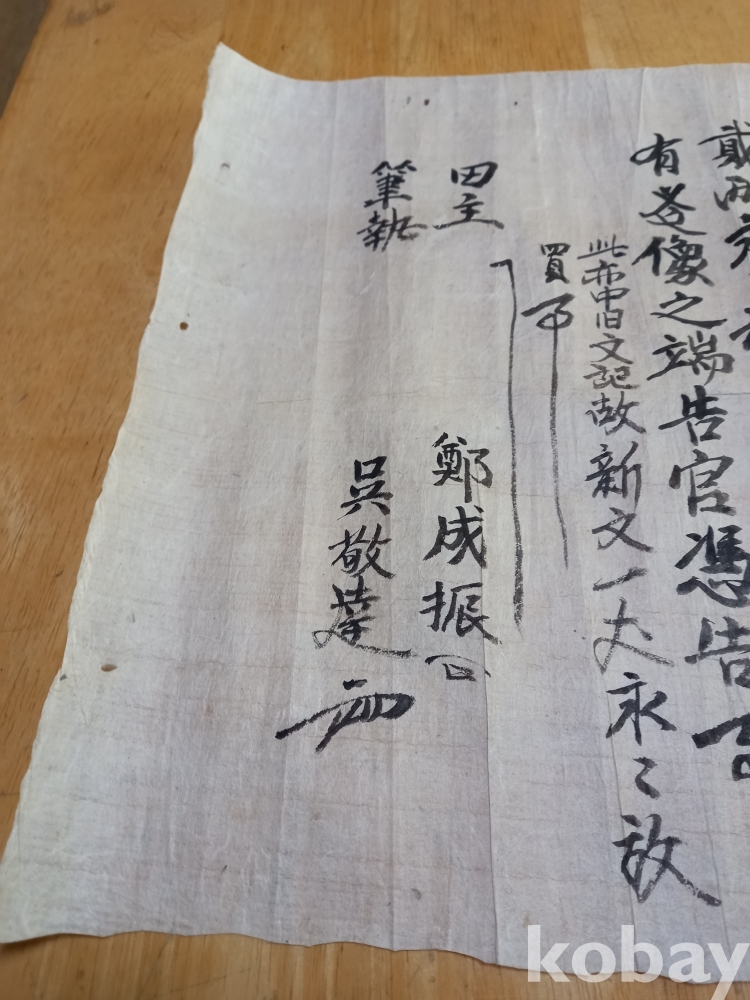 貳兩
有
像之端告官憑告
此亦中旧文記故新文一丈永〻放
買
田主 鄭成振
筆執 吳敬達
kobay